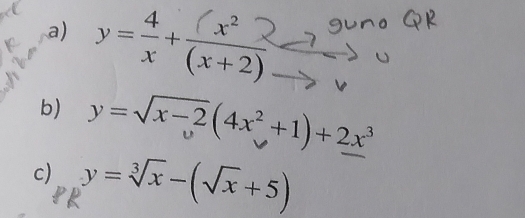 a) y = 4/x + (x²)/(x+2) guna QR → u → v
b) y = √(x−2) (4x² + 1) + 2x³
u v
c) y = ∛x − (√x + 5)
PR